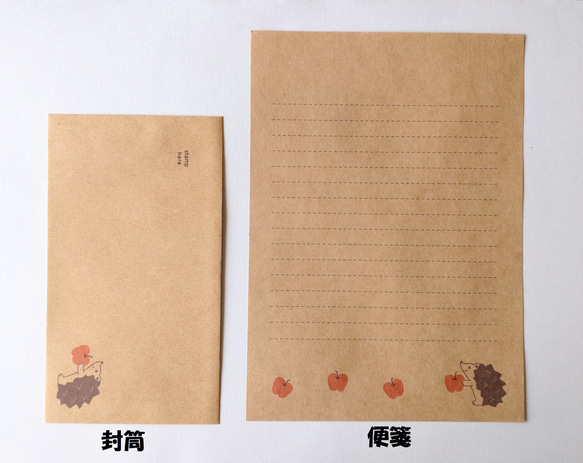 stamp
here
封筒
便箋